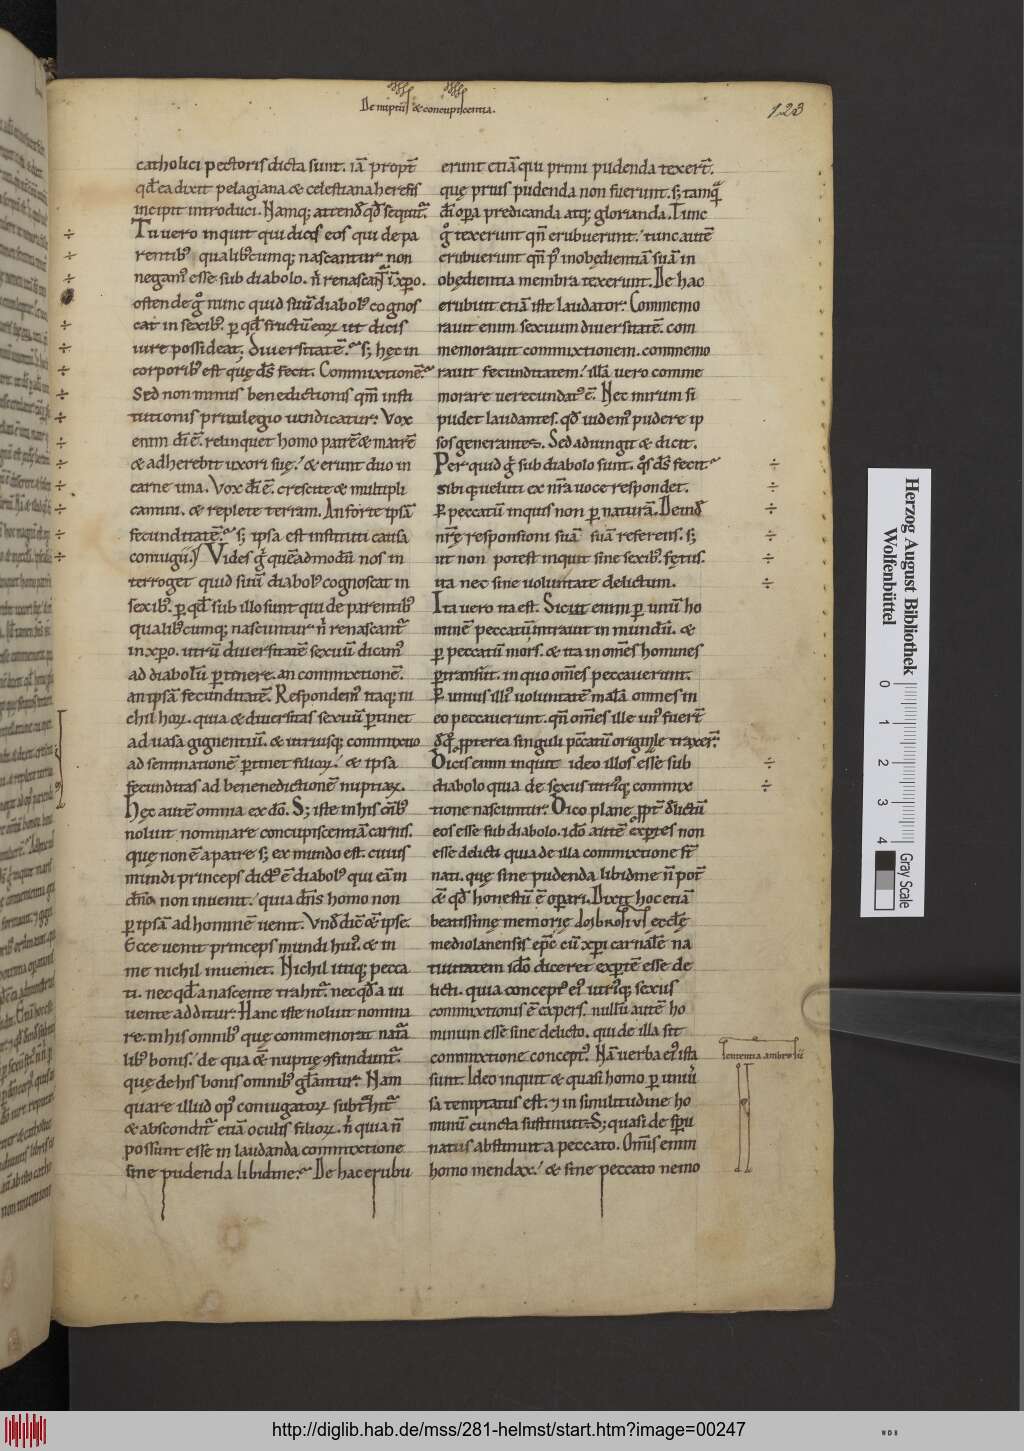 De nuptiis & concupiscentia.
123
catholici pectoris dicta sunt. iā propt̄
qđ ea dixit pelagiana & celestiana heresis
incipit introduci. Namq; attende qđ sequit᷑.
Tu uero inquit qui dicis eos qui de pa
rentibꝰ qualibꝰcumq; nascantur non
negamꝰ esse sub diabolo. n̄ renascant᷑ ī xp̄o.
ostende gͦ nunc quid suū diabolꝰ cognos
cat in sexibꝰ. ꝑ qđ fructū eoꝝ ut dicis
iure possideat. diuersitatē. s; hęc in
corporibꝰ est quę dſ̄ fecit. Commixtionē.
Sed non minus benedictionis qm̄ insti
tutionis priuilegio uindicatur. Vox
enim dī ē. relinquet homo patrē & matrē
& adherebit uxori suę. & erunt duo in
carne una. Vox dī ē. crescite & multipli
camini. & replete terram. An forte ipsā
fecunditatē. s; ipsa est instituti causa
coniugii. Vides gͦ quēadmodū nos in
terroget quid suū diabolꝰ cognoscat in
sexibꝰ. ꝑ qđ sub illo sunt qui de parentibꝰ
qualibꝰcumq; nascuntur n̄ renascant᷑
in xp̄o. utrū diuersitatē sexuū dicamꝰ
ad diabolū ꝑtinere. an commixtionē.
an ipsā fecunditatē. Respondemꝰ itaq; ni
chil hoꝝ. quia & diuersitas sexuū ꝑtinet
ad uasa gignentiū. & utriusq; commixtio
ad seminationē ꝑtinet filioꝝ. & ipsa
fecunditas ad benenedictionē nuptiaꝝ.
Hęc autē omnia ex dō. S; iste in his oīb
noluit nominare concupiscentiā carnis.
quę non ē a patre s; ex mundo est. cuius
mundi princeps dictꝰ ē diabolꝰ qui eā in
dn̄o non inuenit. quia dn̄s homo non
ꝑ ipsā ad hominē uenit. Vnđ dic̄ & ipse.
Ecce uenit princeps mundi huiꝰ. & in
me nichil inueniet. Nichil utiq; pecca
ti. nec qđ a nascente trahit᷑. nec qđ a ui
uente additur. Hanc iste noluit nomina
re. in his omnibꝰ quę commemorat natā
libꝰ bonis. de qua & nuptię ꝯfundunt᷑.
quę de his bonis omnibꝰ gl̄antur. Nam
quare illud opꝰ coniugatoꝝ subt᷑hit᷑
& abscondit᷑ etiā oculis filioꝝ. n̄ quia n̄
possunt esse in laudanda commixtione
sine pudenda libidine. De hac erubu
erunt etiā qui primi pudenda texer̄.
quę prius pudenda non fuerunt. s; tamqͣ
dī oꝑa predicanda atq; glorianda. Tunc
gͦ texerunt qn̄ erubuerunt. tunc autē
erubuerunt qn̄ pꝰ inobędientiā suā in
obędientia membra texerunt. De hac
erubuit etiā iste laudator. Commemo
rauit enim sexuum diuersitatē. com
memorauit commixtionem. commemo
rauit fecunditatem. illā uero comme
morare uerecundatꝰ ē. Nec mirum si
pudet laudantes. qđ uidemꝰ pudere ip
sos generantes. Sed adiungit & dicit.
Per quid gͦ sub diabolo sunt. qͦs dſ̄ fecit
sibi q; ueluti ex nr̄a uoce respondet.
Ꝑ peccatū inquis non ꝑ naturā. Deinđ
nr̄ę responsioni suā suā referens. s;
ut non potest inquit sine sexibꝰ fętus.
ita nec sine uoluntate delictum.
Ita uero ita est. Sicut enim ꝑ unū ho
minē peccatū intrauit in mundū. &
ꝑ peccatū mors. & ita in om̄es homines
ꝑtransiit. in quo om̄es peccauerunt.
Ꝑ unius illiꝰ uoluntatē malā omnes in
eo peccauerunt. qn̄ om̄es ille unꝰ fuer̄
đ qͦ ꝓpterea singuli pc̄catū originale traxer̄.
Dicis enim inquit ideo illos esse sub
diabolo quia de sexus utriꝰq; commix
tione nascuntur. Dico plane ꝓpt̄ delictū
eos esse sub diabolo. idō autē exptes non
esse delicti quia de illa commixtione s̄t
nati. quę sine pudenda libidine n̄ pot̄
& qđ honestū ē oꝑari. Dixit hoc etiā
beatissimę memorię ambrosius ęcclę
mediolanensis ep̄c cū xp̄i carnalē na
tiuitatem idō diceret exptē esse de
licti. quia conceptꝰ eiꝰ utriꝰq; sexus
commixtionis ē expers. nullū autē ho
minum esse sine delicto. qui de illa sit
commixtione conceptꝰ. Nā uerba eiꝰ ista
sunt. Ideo inquit & quasi homo ꝑ uniū
sa temptatus est. & in similitudine ho
minū cuncta sustinuit. S; quasi de sp̄u
natus abstinuit a peccato. Om̄is enim
homo mendax. & sine peccato nemo
sententia ambrosii
Herzog August Bibliothek
Wolfenbüttel
0 1 2 3 4
Gray Scale
http://diglib.hab.de/mss/281-helmst/start.htm?image=00247
WDB